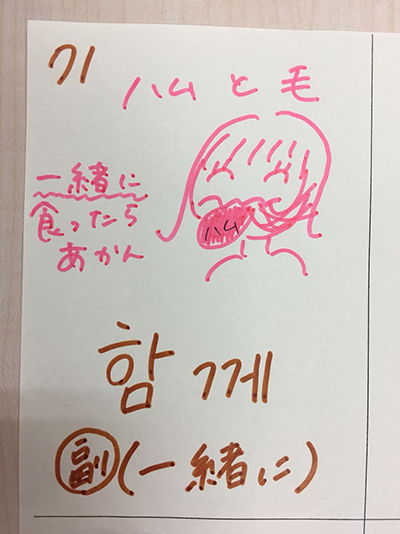 71
ハムと毛
一緒に
食ったら
あかん
ハム
함께
副(一緒に)